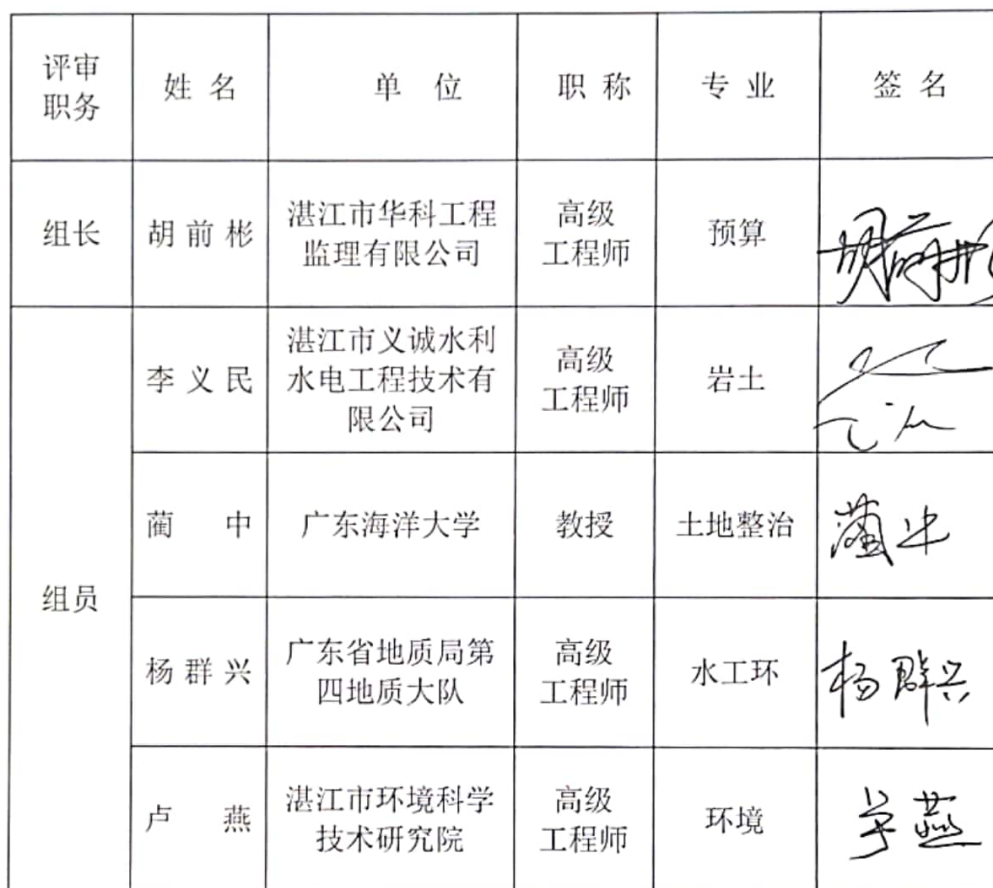 评审
职务
姓名
单位
职称
专业
签名
组长
胡前彬
湛江市华科工程
监理有限公司
高级
工程师
预算
胡前彬
组员
李义民
湛江市义诚水利
水电工程技术有
限公司
高级
工程师
岩土
蔺中
广东海洋大学
教授
土地整治
蔺中
杨群兴
广东省地质局第
四地质大队
高级
工程师
水工环
杨群兴
卢燕
湛江市环境科学
技术研究院
高级
工程师
环境
卢燕